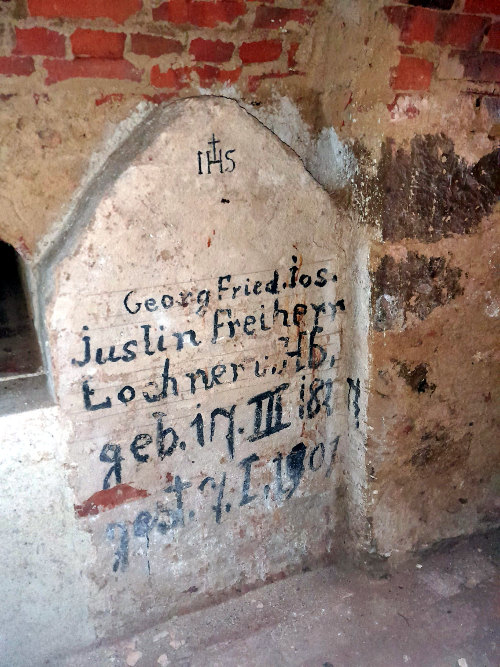 IHS
Georg Fried. Jos.
Justin Freiherr
Lochner v. Hb.
geb. 17. III 18
gest. 7. I. 1907